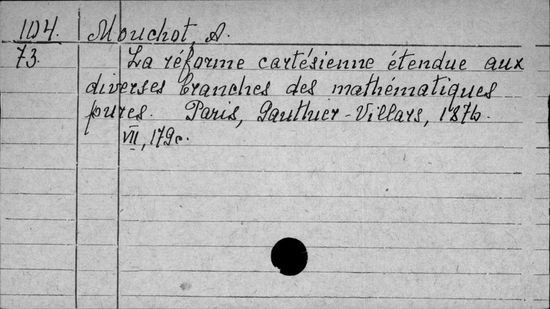 104. Mouchot A.
73. La réforme cartésienne étendue aux
diverses branches des mathématiques
pures. Paris, Gauthier-Villars, 1876.
VII, 179c.